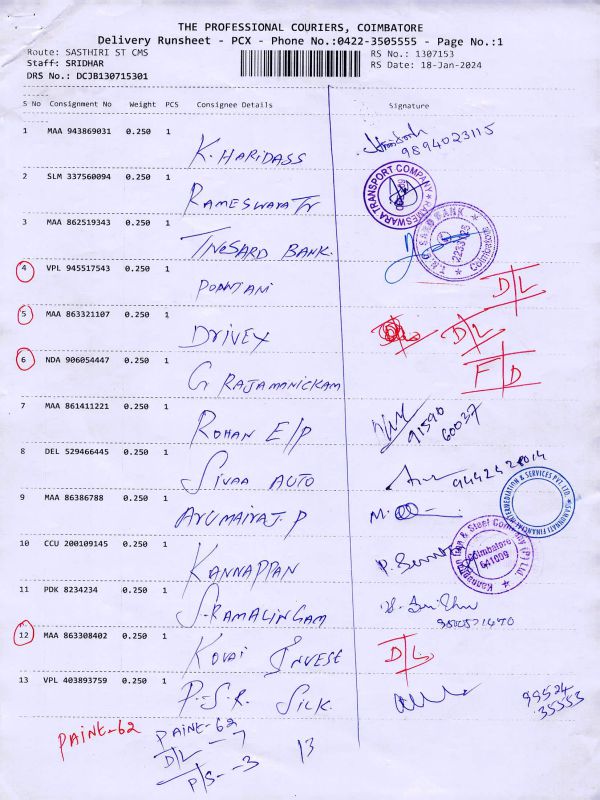 THE PROFESSIONAL COURIERS, COIMBATORE
Delivery Runsheet - PCX - Phone No.:0422-3505555 - Page No.:1
Route: SASTHIRI ST CMS RS No.: 1307153
Staff: SRIDHAR RS Date: 18-Jan-2024
DRS No.: DCJB130715301
S No Consignment No Weight PCS Consignee Details Signature
1 MAA 943869031 0.250 1 K. HARIDASS
9894023115
2 SLM 337560094 0.250 1 RAMESWARA Tr
RAMESWARA TRANSPORT COMPANY
3 MAA 862519343 0.250 1 TNGSARD BANK.
4 VPL 945517543 0.250 1 D/L
5 MAA 863321107 0.250 1 DRIVEX D/L
6 NDA 906054447 0.250 1 G RAJAMANICKAM F/D
7 MAA 861411221 0.250 1 ROHAN E/P 91590 60037
8 DEL 529466445 0.250 1 SIVAA AUTO
9 MAA 86386788 0.250 1 ARUMAIRAJ. P
10 CCU 200109145 0.250 1 KANNAPPAN
Coimbatore
11 PDK 8234234 0.250 1 S. RAMALINGAM
12 MAA 863308402 0.250 1 KOVAI INVEST D/L
13 VPL 403893759 0.250 1 P.S.R. SILK. 99524 35353
PAINT-62 PAINT-62
D/L - 7
P/S - 3 13